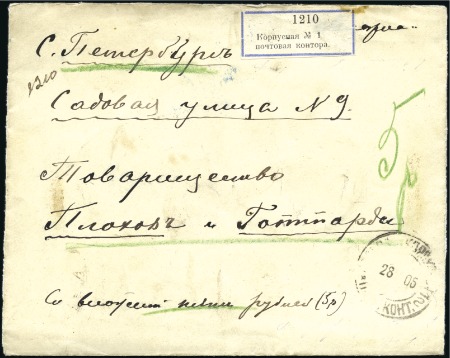 1210
Корпусная № 1
почтовая контора.
С. Петербургъ
1210
Садовая улица N 9.
Товарищество
Плоховъ и Готтарди
Со вложен. пяти рублей (5р)
28 05
КОНТ.